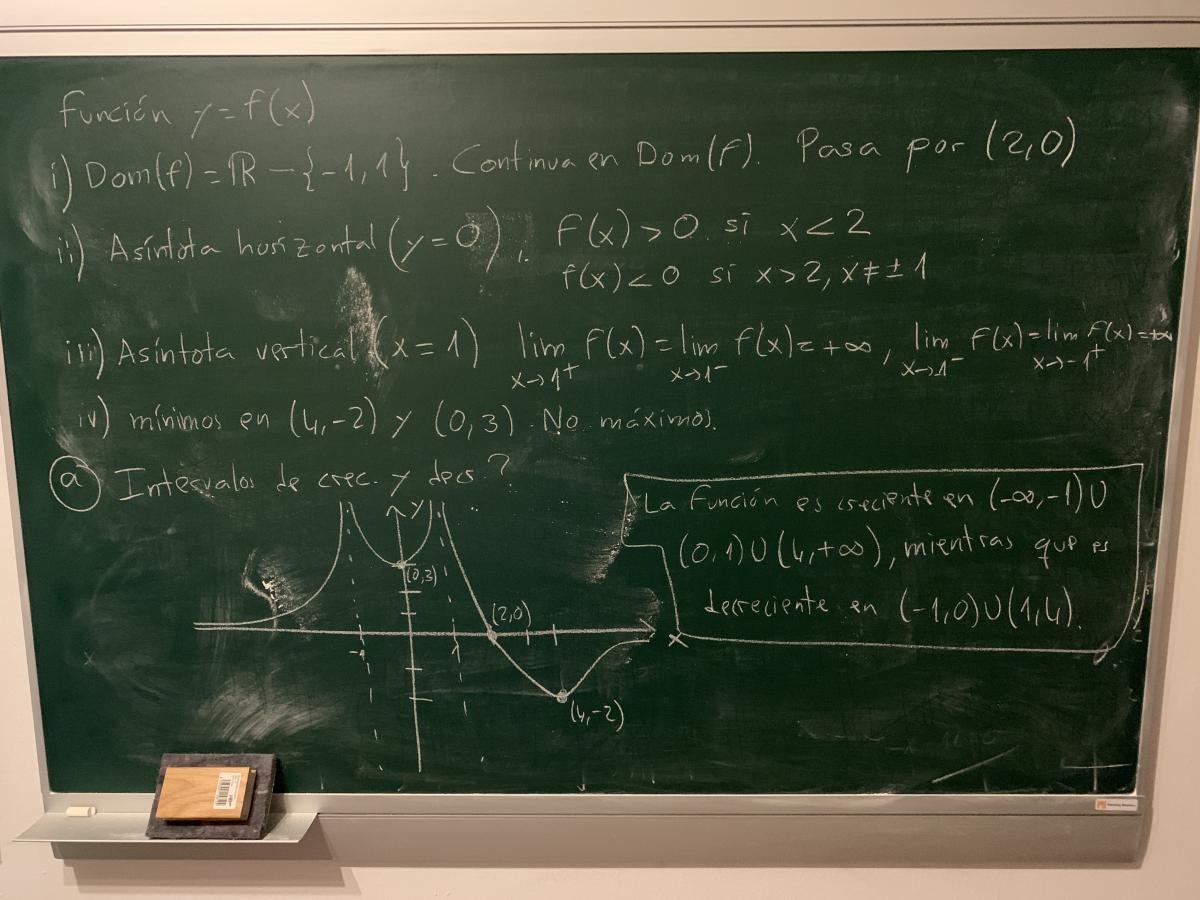 Función y = f(x)
i) Dom(f) = ℝ - {-1, 1}. Continua en Dom(f). Pasa por (2,0)
ii) Asíntota horizontal (y = 0). f(x) > 0 si x < 2
f(x) < 0 si x > 2, x ≠ ± 1
iii) Asíntota vertical (x = 1) lim f(x) = lim f(x) = +∞, lim f(x) = lim f(x) = +∞
x→1⁺ x→1⁻ x→1⁻ x→-1⁺
iv) mínimos en (4,-2) y (0,3). No máximos.
(a) Intervalos de crec. y decr?
La función es creciente en (-∞,-1)∪
(0,1)∪(4,+∞), mientras que es
decreciente en (-1,0)∪(1,4).
y
(0,3)
(2,0)
-1 1 x
(4,-2)